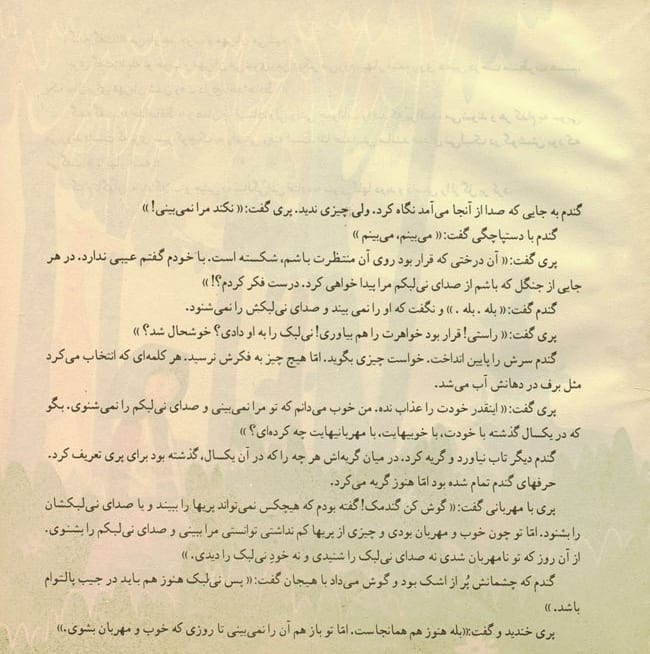 گندم به جایی که صدا از آنجا می‌آمد نگاه کرد. ولی چیزی ندید. پری گفت: « نکند مرا نمی‌بینی! »
گندم با دستپاچگی گفت: « می‌بینم، می‌بینم »
پری گفت: « آن درختی که قرار بود روی آن منتظرت باشم، شکسته است. با خودم گفتم عیبی ندارد. در هر
جایی از جنگل که باشم از صدای نی‌لبکم مرا پیدا خواهی کرد. درست فکر کردم؟! »
گندم گفت: « بله . بله . » و نگفت که او را نمی بیند و صدای نی‌لبکش را نمی‌شنود.
پری گفت: « راستی! قرار بود خواهرت را هم بیاوری! نی‌لبک را به او دادی؟ خوشحال شد؟ »
گندم سرش را پایین انداخت. خواست چیزی بگوید. امّا هیچ چیز به فکرش نرسید. هر کلمه‌ای که انتخاب می‌کرد
مثل برف در دهانش آب می‌شد.
پری گفت: « اینقدر خودت را عذاب نده. من خوب می‌دانم که تو مرا نمی‌بینی و صدای نی‌لبکم را نمی‌شنوی. بگو
که در یکسال گذشته با خودت، با خوبیهایت، با مهربانیهایت چه کرده‌ای؟ »
گندم دیگر تاب نیاورد و گریه کرد. در میان گریه‌اش هر چه را که در آن یکسال، گذشته بود برای پری تعریف کرد.
حرفهای گندم تمام شده بود امّا هنوز گریه می‌کرد.
پری با مهربانی گفت: « گوش کن گندمک! گفته بودم که هیچکس نمی‌تواند پریها را ببیند و یا صدای نی‌لبکشان
را بشنود. امّا تو چون خوب و مهربان بودی و چیزی از پریها کم نداشتی توانستی مرا ببینی و صدای نی‌لبکم را بشنوی.
از آن روز که تو نامهربان شدی نه صدای نی‌لبک را شنیدی و نه خودِ نی‌لبک را دیدی. »
گندم که چشمانش پُر از اشک بود و گوش می‌داد با هیجان گفت: « پس نی‌لبک هنوز هم باید در جیب پالتوام
باشد. »
پری خندید و گفت:«بله هنوز هم همانجاست. امّا تو باز هم آن را نمی‌بینی تا روزی که خوب و مهربان بشوی.»